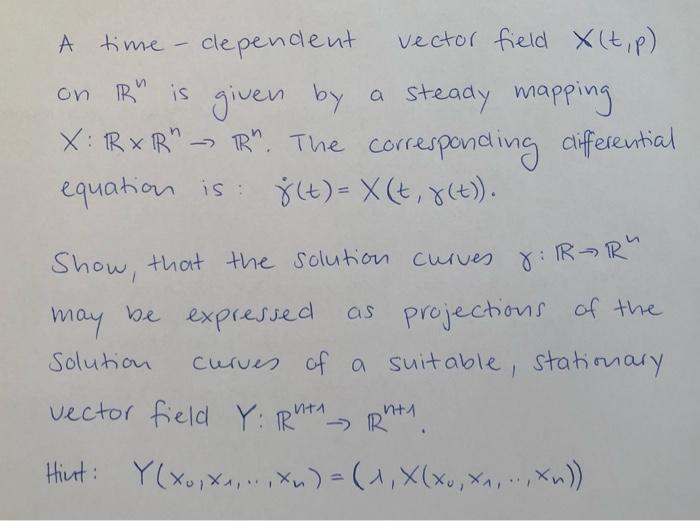 A time-dependent vector field X(t,p)
on ℝⁿ is given by a steady mapping
X: ℝ×ℝⁿ → ℝⁿ. The corresponding differential
equation is: γ̇(t) = X(t, γ(t)).
Show, that the solution curves γ: ℝ→ℝⁿ
may be expressed as projections of the
solution curves of a suitable, stationary
vector field Y: ℝⁿ⁺¹ → ℝⁿ⁺¹.
Hint: Y(x₀,x₁,..,xₙ) = (1, X(x₀,x₁,..,xₙ))